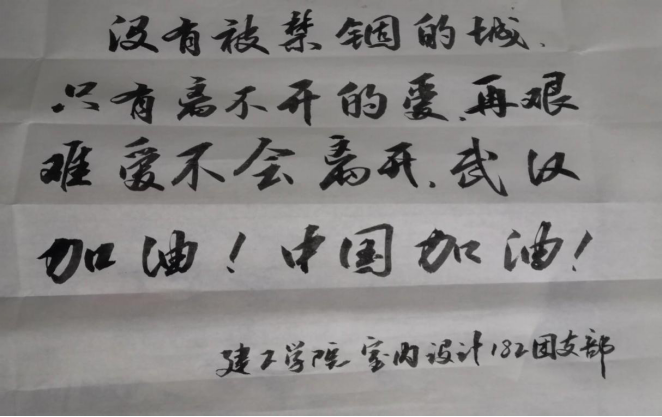 没有被禁锢的城,
只有离不开的爱,再艰
难爱不会离开,武汉
加油!中国加油!
建工学院 室内设计182团支部